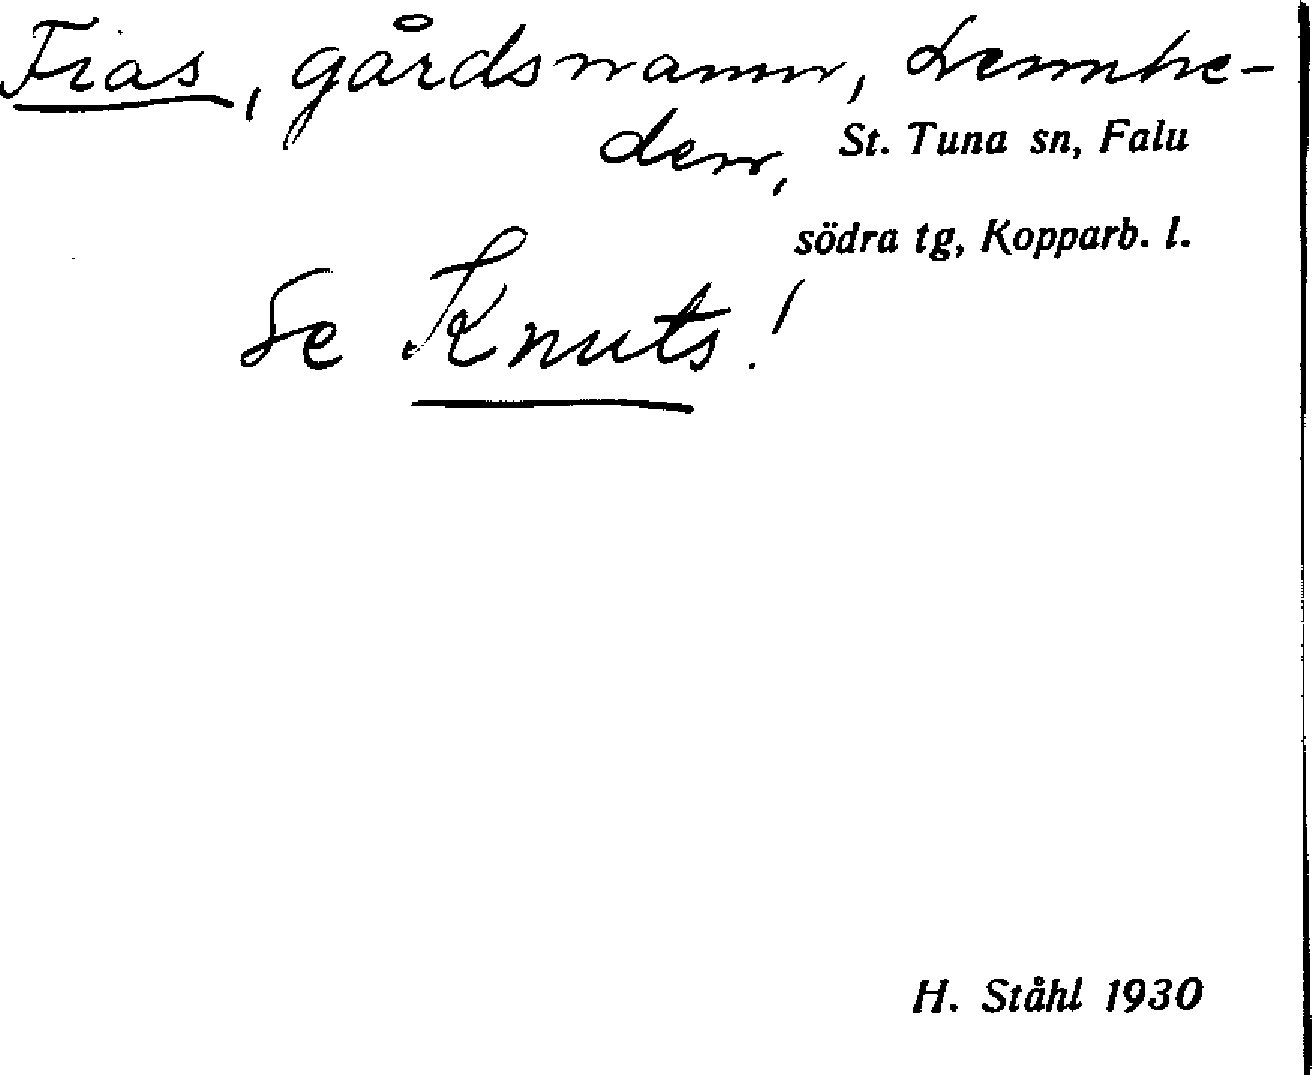 Fias, gårdsnamn, Lennhe-
den, St. Tuna sn, Falu
södra tg, Kopparb. l.
Se Knuts!
H. Ståhl 1930